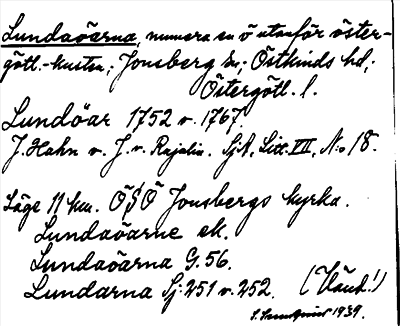 Lundaöarna, numera en ö utanför öster-
götl.-kusten; Jonsberg sn; Östkinds hd;
Östergötl. l.
Lundöar 1752 v. 1767.
J. Hahn v. J. v. Rajalin. SjA, Litt. VII, No 18.
Läge 11 km. ÖSÖ Jonsbergs kyrka.
Lundaöarne ek.
Lundaöarna G. 56.
Lundarna Sj. 251 v. 252. (Händ!)
1939.